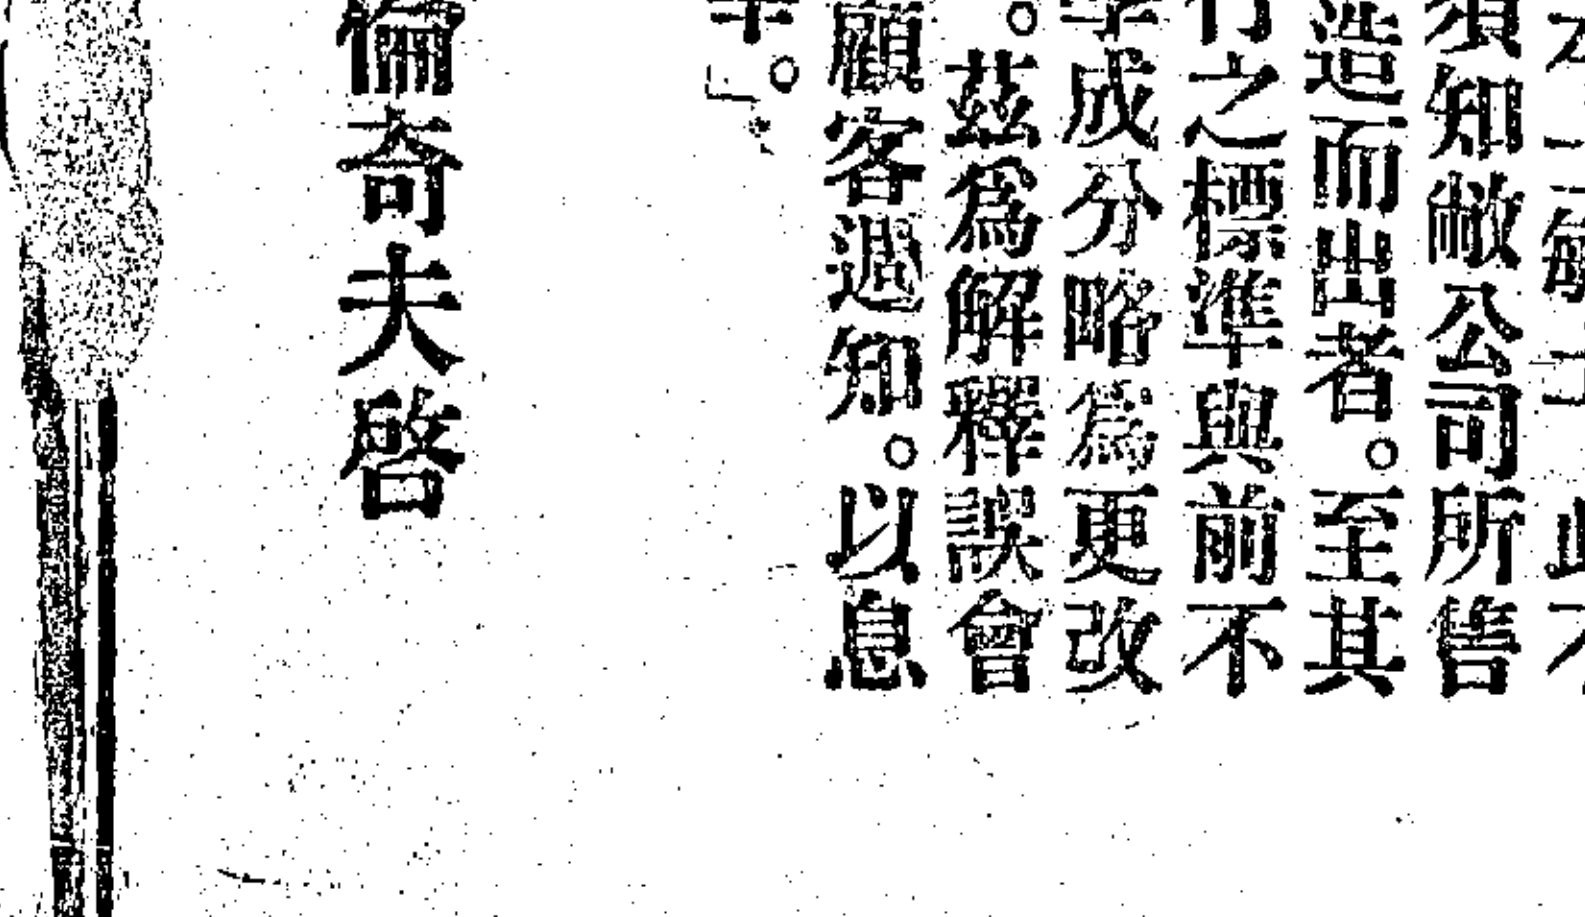 須知敝公司所售
造而出者。至其
行之標準與前不
學成分略為更改
。茲為解釋誤會
顧客週知。以息
倫奇夫啓